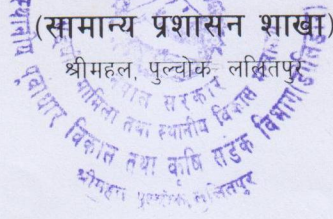 (सामान्य प्रशासन शाखा)
श्रीमहल, पुल्चोक, ललितपुर
नेपाल सरकार
मामिला तथा स्थानीय विकास
स्थानीय पूर्वाधार विकास तथा कृषि सडक विभाग
श्रीमहल पुल्चोक, ललितपुर